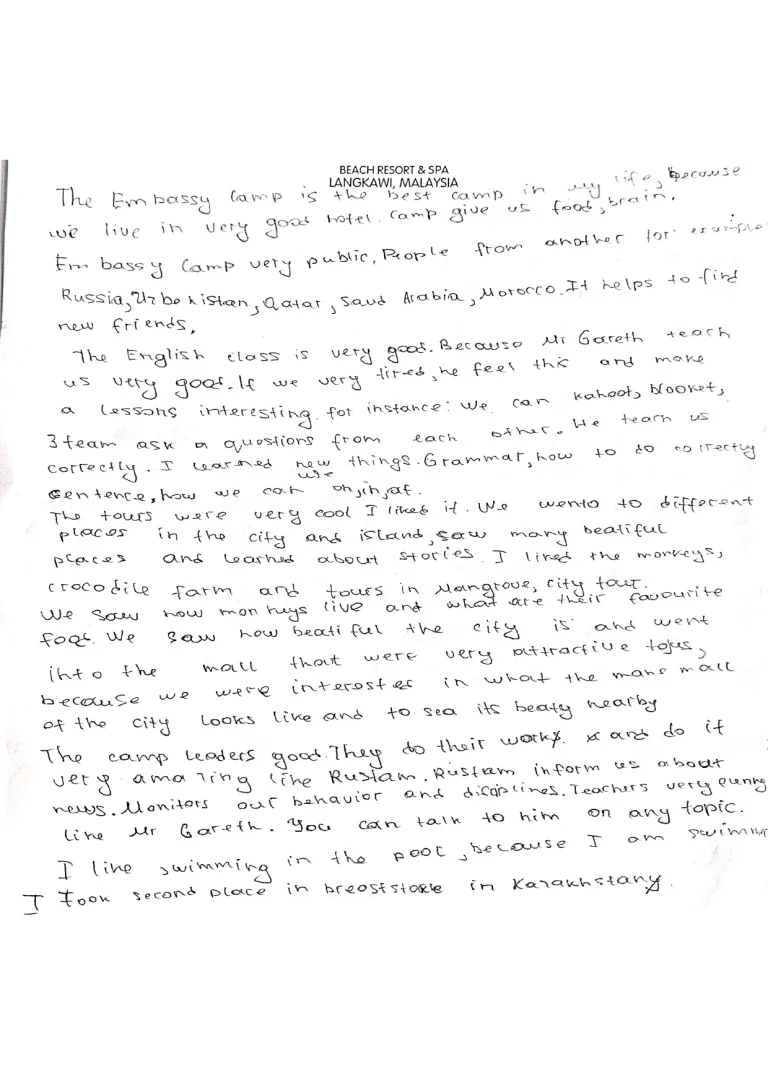 BEACH RESORT & SPA
LANGKAWI, MALAYSIA
The Embassy Camp is the best camp in my life, because
we live in very good hotel. Camp give us food, brain.
Embassy Camp very public, People from another for example
Russia, Uzbekistan, Qatar, Saud Arabia, Morocco. It helps to find
new friends.
The English class is very good. Because Mr Gareth teach
us very good. If we very tired, he feel this and make
a lessons interesting for instance: We can kahoot, blooket,
3 team ask a questions from each other. He teach us
correctly. I learned new things. Grammar, how to do correctly
we
sentence, how we can on, in, at.
The tours were very cool I liked it. We wento to different
places in the city and island, saw many beatiful
places and learned about stories. I liked the monkeys,
crocodile farm and tours in Mangrove, city tour.
We saw how monkeys live and what are their favourite
foot. We saw how beatiful the city is and went
into the mall that were very attractive to us,
because we were interested in what the mane mall
of the city looks like and to sea its beaty nearby
The camp leaders good. They do their work. and do it
very amazing like Rustam. Rustam inform us about
news. Monitors our behavior and dicsiplines. Teachers very
like Mr Gareth. You can talk to him on any topic.
I like swimming in the pool, because I am swimm
I took second place in breaststoke in Kazakhstany.